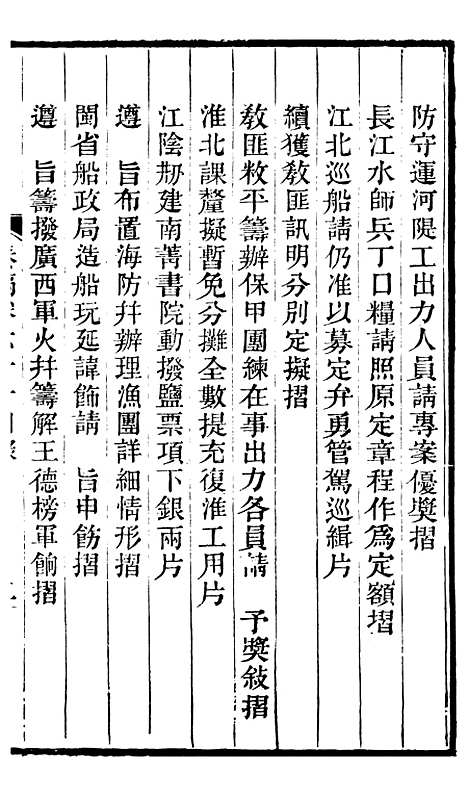 防守運河隄工出力人員請專案優獎摺
長江水師兵丁口糧請照原定章程作爲定額摺
江北巡船請仍准以募定弁勇管駕巡緝片
續獲敎匪訊明分別定擬摺
敎匪敉平籌辦保甲團練在事出力各員請　予獎敍摺
淮北課釐擬暫免分攤全數提充復淮工用片
江陰剏建南菁書院動撥鹽票項下銀兩片
遵　旨布置海防幷辦理漁團詳細情形摺
閩省船政局造船玩延諱飾請　旨申飭摺
遵　旨籌撥廣西軍火幷籌解王德榜軍餉摺